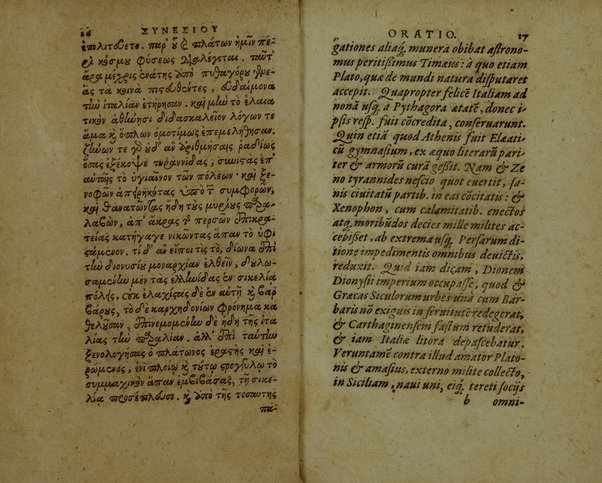 16 ΣΥΝΕΣΙΟΥ
ἐπολιτεύετο. παρ' οὗ ὁ πλάτων ἡμῖν πε-
ρὶ κόσμου φύσεως διαλέγεται. ταῦτ'
ἄρα μέχρις ἐνάτης ἀπὸ πυθαγόρου γενε-
ᾶς τὰ κοινὰ πιστευθέντες, εὐδαίμονα
τὴν ἰταλίαν ἐτήρησαν. καὶ μὴν τὸ ἐλεατι-
κὸν ἀθήνησι διδασκαλεῖον λόγων τε
ἅμα καὶ ὅπλων ὁμοτίμως ἐπεμελήθησαν.
ζήνων τε γὰρ οὐδ' ἂν ἀριθμήσαις ῥᾳδίως
ὅπας ἐξέκοψε τυραννίδας,
αὐταῖς τὸ ὑγιαῖνον τῶν πόλεων· καὶ ξε-
νοφῶν ἀπειρηκότας ὑπὸ τῶν συμφορῶν,
καὶ θανατῶντας ἤδη τοὺς μυρίους παρα-
λαβών, ἀπ' ἄκρας τῆς περσῶν ἐπικρα-
τείας κατήγαγε νικῶντας ἅπαν τὸ ὑφι-
στάμενον. τί δ' ἂν εἴποι τις τὸ, δίωνα ἐπὶ
τὴν διονυσίου μοναρχίαν ἐλθεῖν, δουλω-
σαμένην μὲν τὰς ἑλληνίδας ἐν σικελίᾳ
πόλεις, οὐκ ἐλαχίστας δὲ ἐν αὐτῇ καὶ βαρ-
βάρους, τὸ δὲ καρχηδονίων φρόνημα κα-
θελοῦσαν, ἐπινεμομένην δὲ ἤδη τῆς ἰτα-
λίας τὴν παραλίαν. ἀλλ' ἐπὶ ταύτην
ξενολογήσας ὁ πλάτωνος ἐραστὴς καὶ ἐ-
ρώμενος, ἑνὶ πλοίῳ καὶ τούτῳ στρογγύλῳ τὸ
συμμαχικὸν ἅπαν ἐμβιβάσας, τῇ σικε-
λίᾳ προσέπλευσε. καὶ ἀπὸ τῆς τοσαύτης
πα-
ORATIO. 17
gationes aliaq́. munera obibat astrono-
mus peritissimus Timæus: à quo etiam
Plato, quæ de mundi natura disputaret
accepit. Quapropter felicē Italiam ad
nonā usq́. à Pythagora ætatē, donec i-
psis resp. fuit cōcredita, conseruarunt.
Quin etiā quod Athenis fuit Elæati-
cū gymnasium, ex æquo literarū pari-
ter & armorū curā gessit. Nam & Ze
no tyrannides nescio quot euertit, sa-
nis ciuitatū partib. in eas cōcitatis: &
Xenophon, cum calamitatib. enectos
atq́. moribūdos decies mille milites ac-
cepisset, ab extrema usq́. Persarum di-
tione impedimentis omnibus deuictis,
reduxit. Quid iam dicam, Dionem
Dionysii imperium occupasse, quod &
Græcas Siculorum urbes unà cum Bar-
baris nō exiguis in seruitutē redegerat,
& Carthaginensem fastum retuderat,
& iam Italiæ litora depascebatur.
Veruntamē contra illud amator Plato-
nis & amasius, externo milite collecto,
in Siciliam, naui uni, eiq́. tereti socijs
b omni-